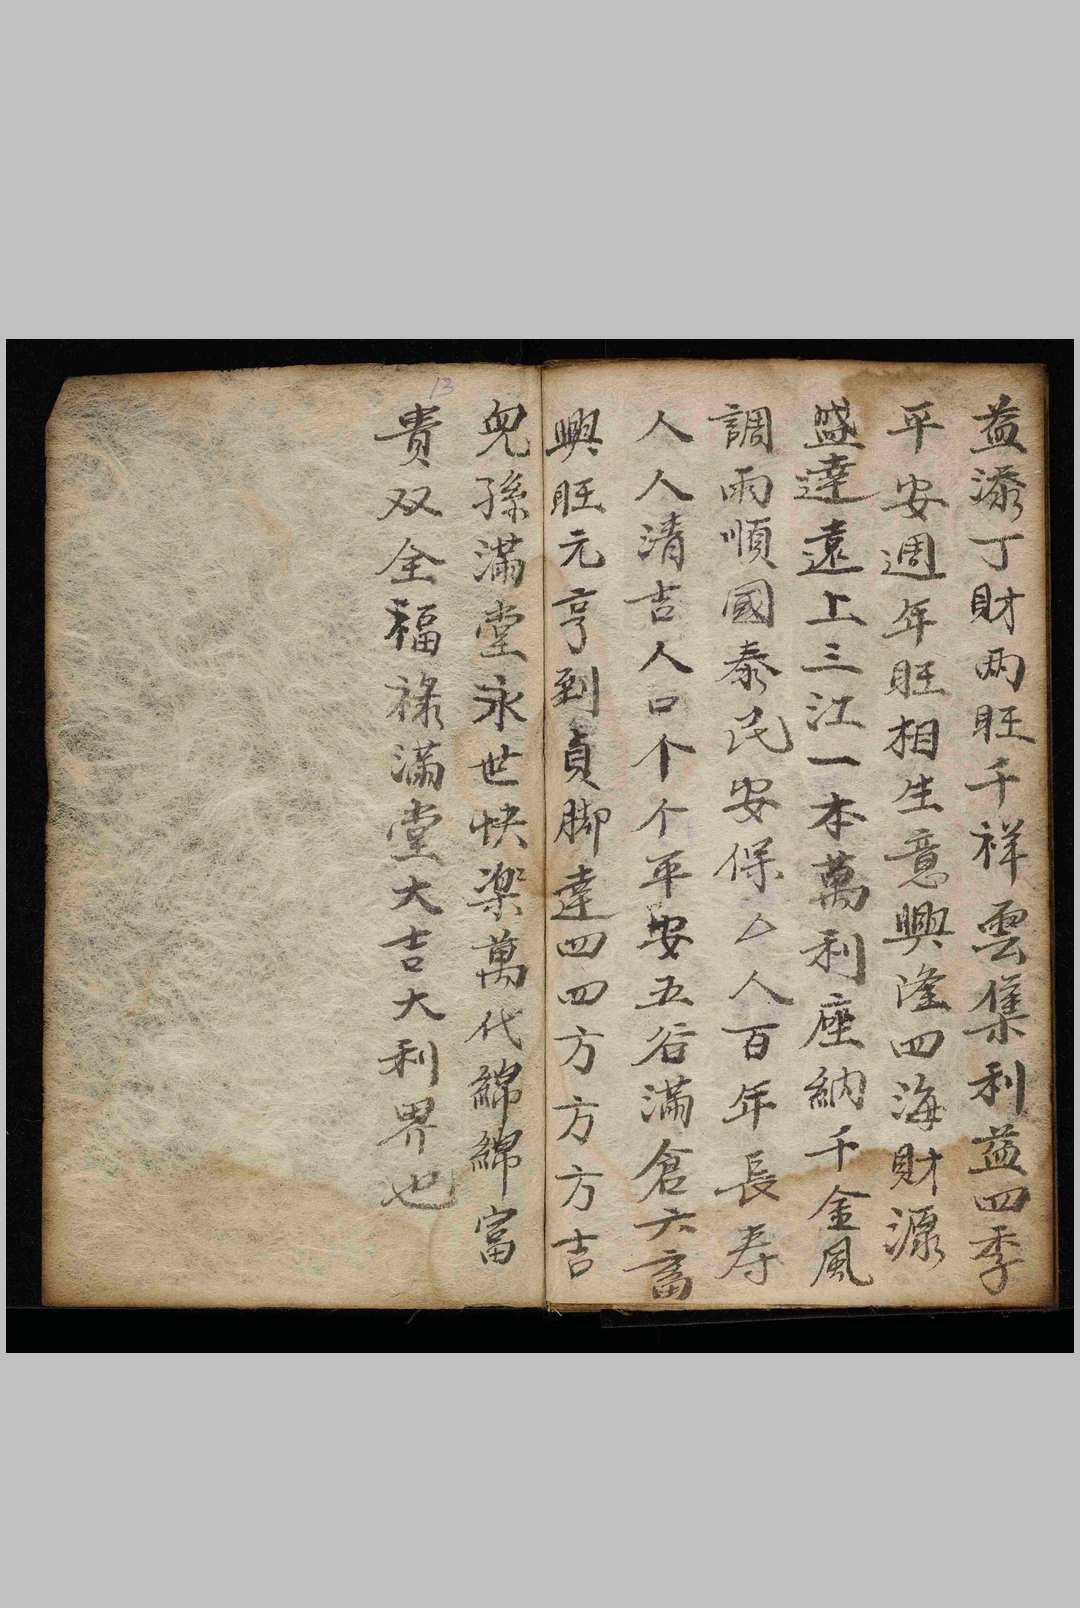 益添丁財両旺千祥雲集利益四季
平安週年旺相生意興隆四海財源
盛達遠上三江一本萬利座納千金風
調雨順國泰民安保亼人百年長寿
人人清吉人口个个平安五谷滿倉六畜
興旺元亨到貞脚達四四方方方吉
兒孫滿堂永世快楽萬代綿綿富
貴双全福祿滿堂大吉大利界也
13